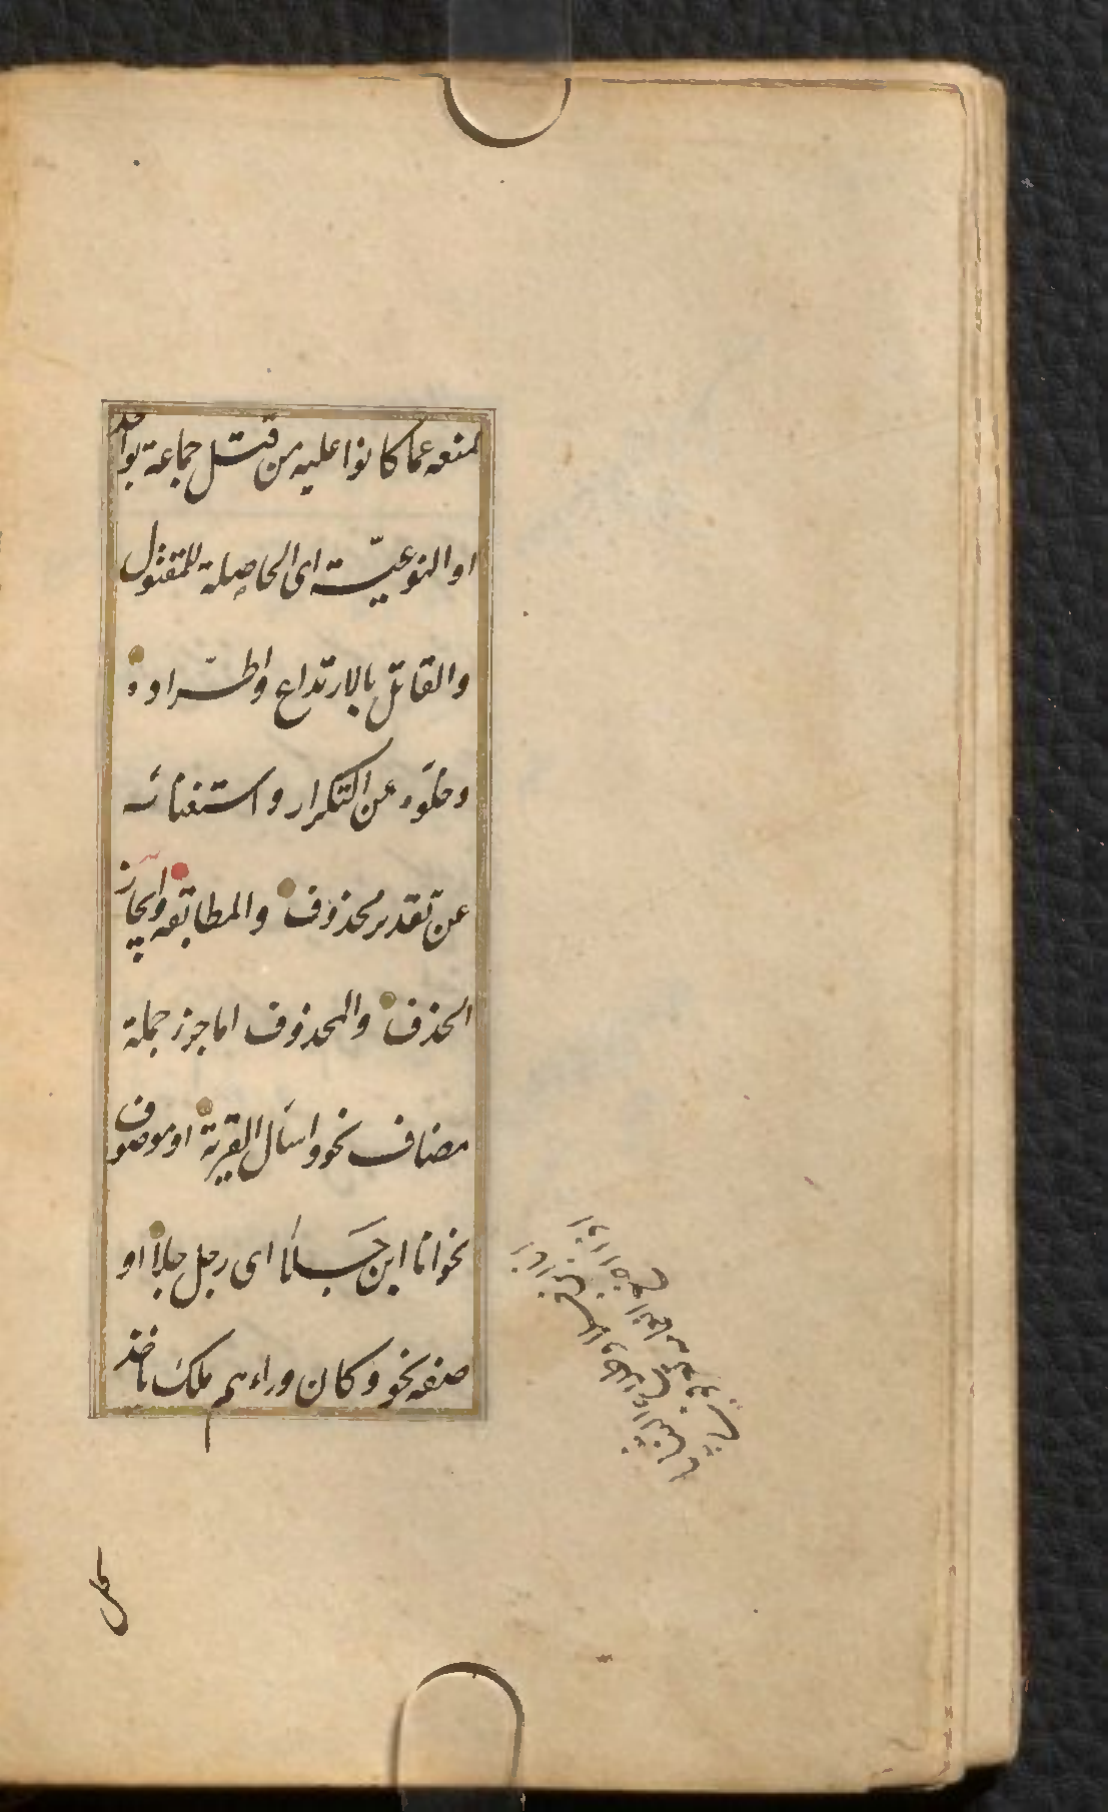 لمنعه عما كانوا عليه من قتل جماعة بواحد
او النوعيّة اى الحاصلة للمقتول
والقاتل بالارتداع واطّراده
وخلوّه عن التكرار واستغنائه
عن تقدير محذوف والمطابقه وايجاز
الحذف والمحذوف اما جزء جملة
مضاف نحو واسأل القرية او موصوف
نحو انا ابن جلا اى رجل جلا او
صفه نحو وكان وراءهم ملك ياخذ
كل